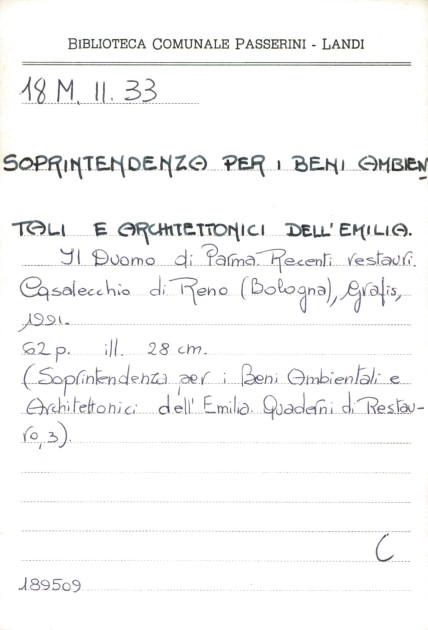 BIBLIOTECA COMUNALE PASSERINI - LANDI
18 M. II. 33
SOPRINTENDENZA PER I BENI AMBIEN
TALI E ARCHITETTONICI DELL'EMILIA.
Il Duomo di Parma. Recenti restauri.
Casalecchio di Reno (Bologna), Grafis,
1991.
62 p. ill. 28 cm.
(Soprintendenza per i Beni Ambientali e
Architettonici dell'Emilia. Quaderni di Restau-
ro, 3).
C
189509